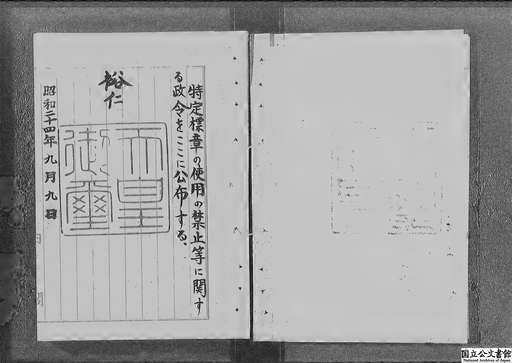 特定標章の使用の禁止等に関す
る政令をここに公布する、
裕仁
天皇
御璽
昭和二十四年九月九日
国立公文書館
National Archives of Japan